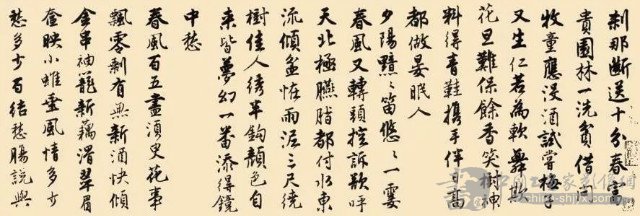 刹那斷送十分春富
貴園林一洗貧借問
牧童應沒酒試嘗梅子
又生仁若為軟舞欺
花旦難保餘香笑樹神
料得青鞋攜手伴日高
都做晏眠人
夕陽黯黯笛悠悠一霎
春風又轉頭控訴欲呼
天北極臙脂都付水東
流傾盆怪雨泥三尺繞
樹佳人繡半鉤顏色自
来皆夢幻一番添得鏡
中愁
春風百五盡須臾花事
飄零剩有無新酒快傾
金串袖籠新藕滑翠眉
奩映小風情多少
愁多少百結愁腸說與